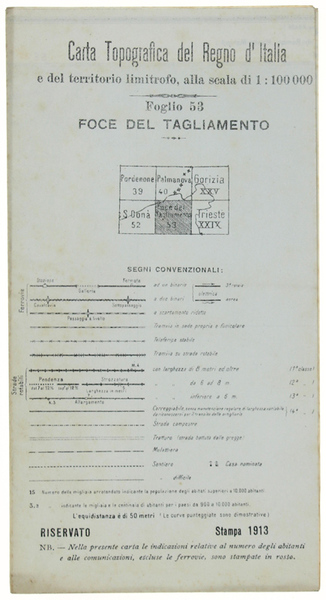 Carta Topografica del Regno d'Italia
e del territorio limitrofo, alla scala di 1:100000
Foglio 53
FOCE DEL TAGLIAMENTO
Pordenone Palmanova Gorizia
39 40 XXV
S. Donà Foce del Tagliamento Trieste
52 53 XXIX
SEGNI CONVENZIONALI:
Ferrovie
Stazione Fermata
Galleria
ad un binario
Cavalcavia Sottopassaggio
a due binari
elettrica
aerea
Passaggio a livello
a scartamento ridotto
Tramvia in sede propria e Funicolare
Teleferica stabile
Tramvia su strada rotabile
Strade rotabili
Pendenza Strozzatura
con larghezza di 8 metri ed oltre (1ª classe)
da 6 ad 8 m.
Allargamento
inferiore a 6 m.
Strada campestre
Tratturo (strada battuta dalle greggi)
Mulattiera
Sentiero Case nominate
difficile
15 Numero delle migliaia arrotondato indicante la popolazione degli abitati superiori a 10.000 abitanti.
indicante le migliaia e le centinaia di abitanti per i paesi da 950 a 10.000 abitanti.
L'equidistanza è di 50 metri (Le curve punteggiate sono dimostrative)
RISERVATO Stampa 1913
NB. — Nella presente carta le indicazioni relative al numero degli abitanti
e alle comunicazioni, escluse le ferrovie, sono stampate in rosso.